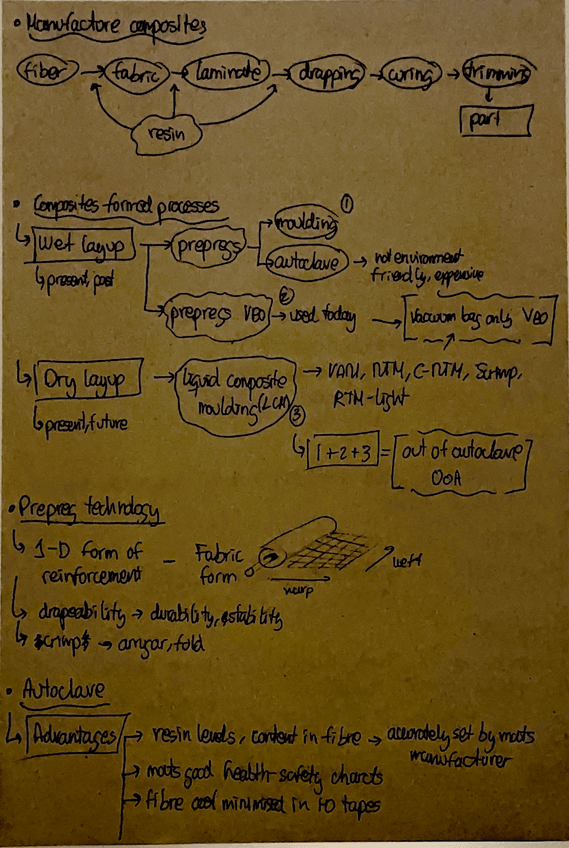 • Manufactore composites
fiber → fabric → laminate → drapping → curing → trimming
resin
part
• Composites formed processes
Wet layup → prepregs → moulding ①
autoclave → not environment
friendly, expensive
present, past
prepregs VBO ② → used today → vacuum bag only VBO
Dry layup → liquid composite
moulding (LCM) ③
→ VARI, RTM, C-RTM, Scrimp,
RTM-light
present, future
1+2+3 = out of autoclave
OoA
• Prepreg technology
1-D form of
reinforcement – Fabric
form
weft
warp
drapeability → durability, stability
scrimp → arrugar, fold
• Autoclave
Advantages → resin levels, content in fibre → accurately set by mats
manufacturer
→ mats good health-safety characts
→ fibre cost minimised in tapes